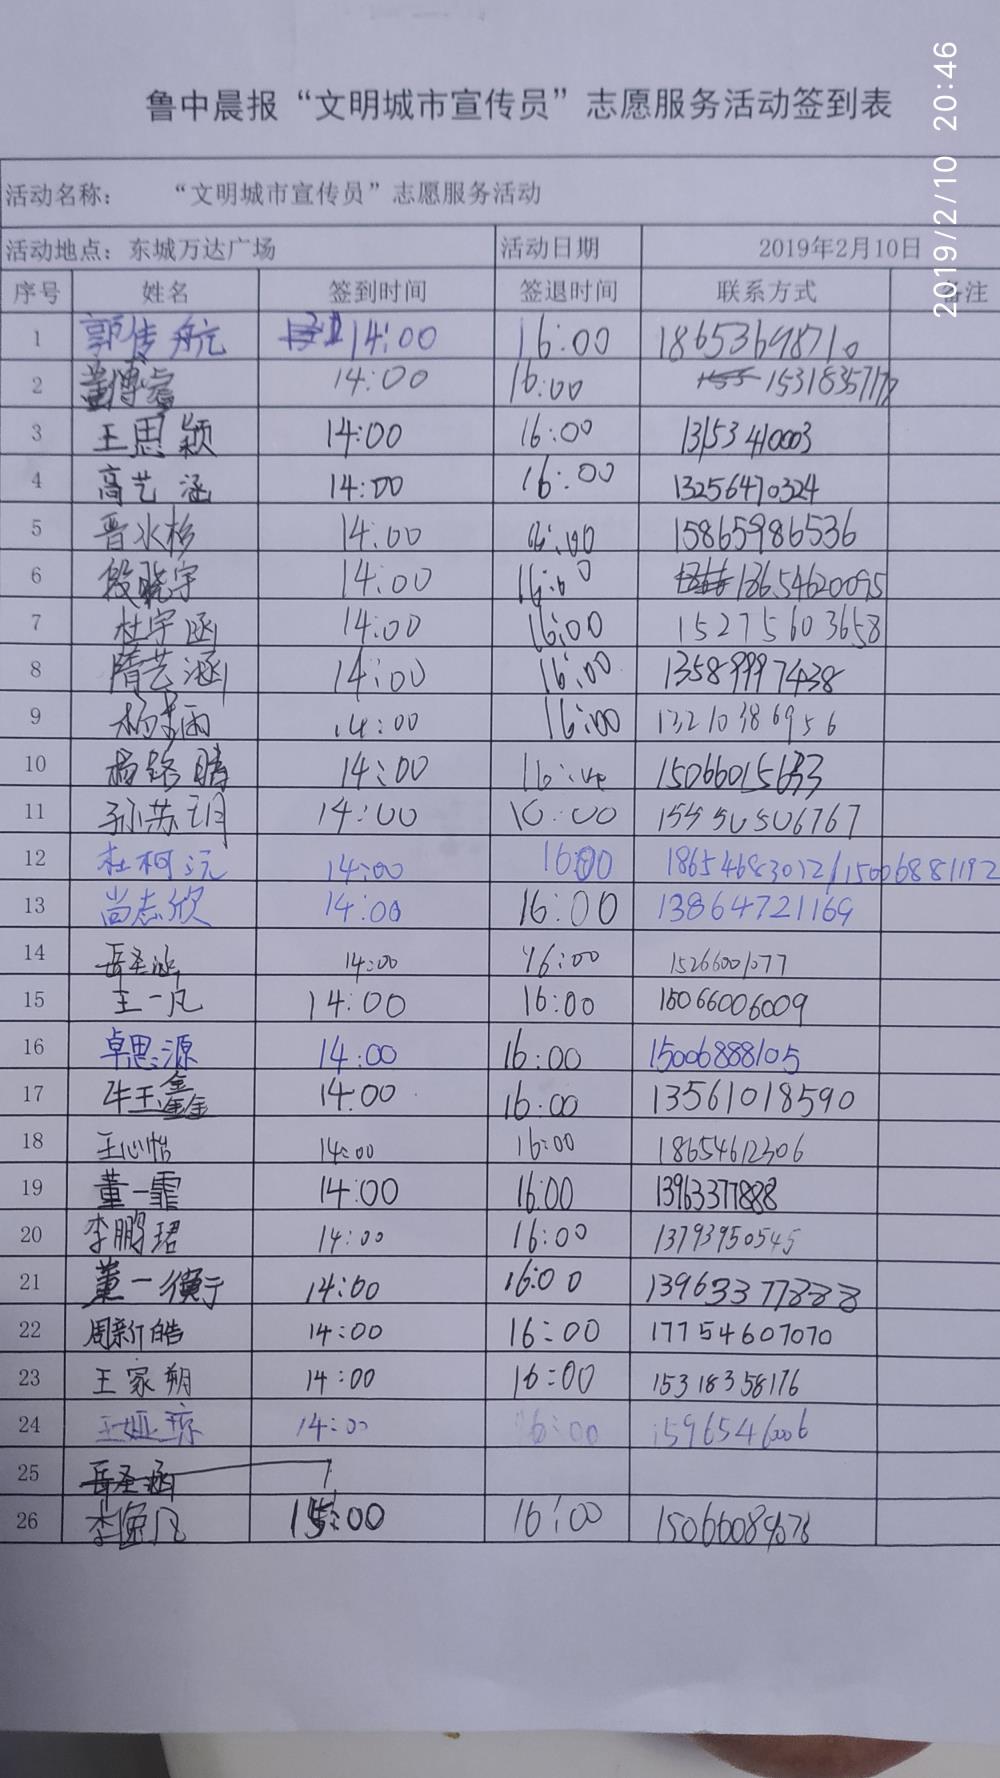 鲁中晨报“文明城市宣传员”志愿服务活动签到表
2019/2/10 20:46
活动名称： “文明城市宣传员”志愿服务活动
活动地点：东城万达广场 活动日期 2019年2月10日
序号 姓名 签到时间 签退时间 联系方式 备注
1 郭传航 14:00 16:00 18653698710
2 董博睿 14:00 16:00 1531835717
3 王思颖 14:00 16:00 13153410003
4 高艺涵 14:00 16:00 13256470324
5 晋水杉 14:00 16:00 15865986536
6 段晓宇 14:00 16:00 18654620095
7 杜宇涵 14:00 16:00 15275603658
8 隋艺涵 14:00 16:00 13589997438
9 杨梦雨 14:00 16:00 13210386956
10 杨铭腾 14:00 15066015633
11 孙苏玥 14:00 16:00 15550506767
12 杜柯沅 14:00 16:00 18654683012/15006881192
13 尚志欣 14:00 16:00 13864721169
14 岳圣涵 14:00 16:00 15266001077
15 王一凡 14:00 16:00 15066006009
16 卓思源 14:00 16:00 15006888105
17 牛玉鑫 14:00 16:00 13561018590
18 王心怡 14:00 16:00 18654612306
19 董一霏 14:00 16:00 13963377888
20 李鹏珺 14:00 16:00 13793950545
21 董一衡 14:00 16:00 13963377888
22 周新皓 14:00 16:00 17754607070
23 王家朔 14:00 16:00 15318358176
24 王娅琼 14:00 16:00 15965460006
25 岳圣涵
26 李 凡 15:00 16:00 15066089676